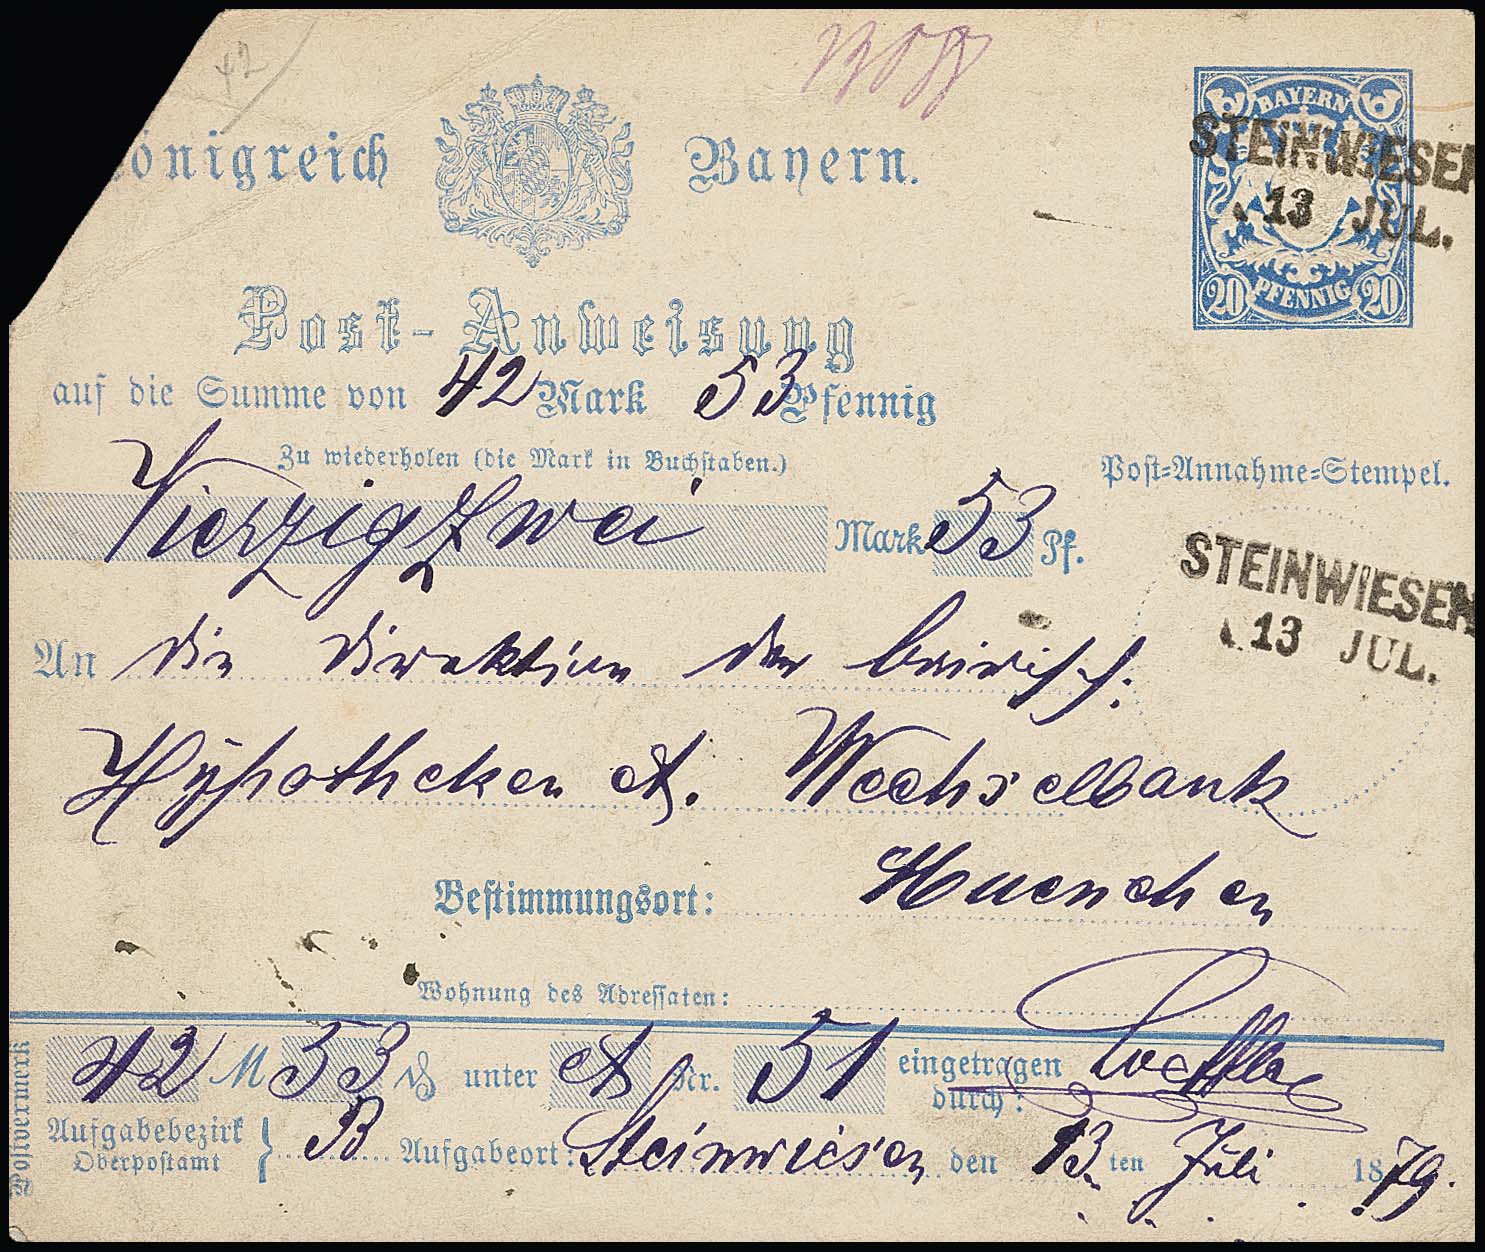 42
Königreich Bayern.
BAYERN
20 PFENNIG 20
STEINWIESEN
13 JUL.
Post-Anweisung
auf die Summe von 42 Mark 53 Pfennig
Zu wiederholen (die Mark in Buchstaben.)
Vierzigzwei Mark 53 Pf.
Post-Annahme-Stempel.
STEINWIESEN
13 JUL.
An die Direktion der bairisch:
Hypotheken &. Wechselbank
Bestimmungsort: Muenchen
Wohnung des Adressaten:
Postvermerk
42 M 53 ₰ unter A Nr. 51 eingetragen
durch:
Aufgabebezirk
Oberpostamt } B Aufgabeort: Steinwiesen den 13. ten Juli 1879.